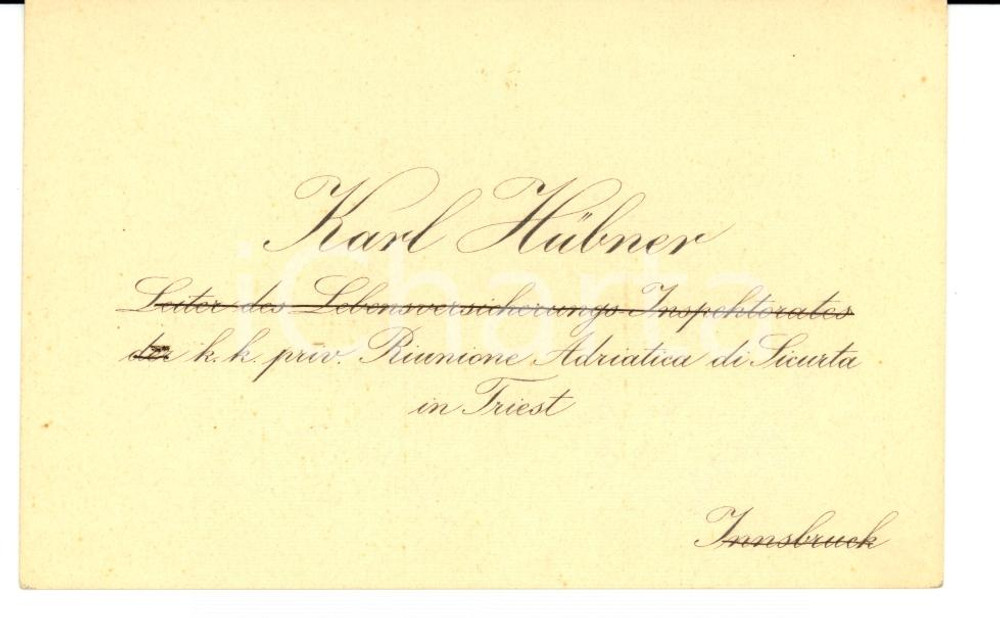 Karl Hübner
Leiter des Lebensversicherungs-Inspektorates
der k. k. priv. Riunione Adriatica di Sicurta
in Triest
Innsbruck
iCharta